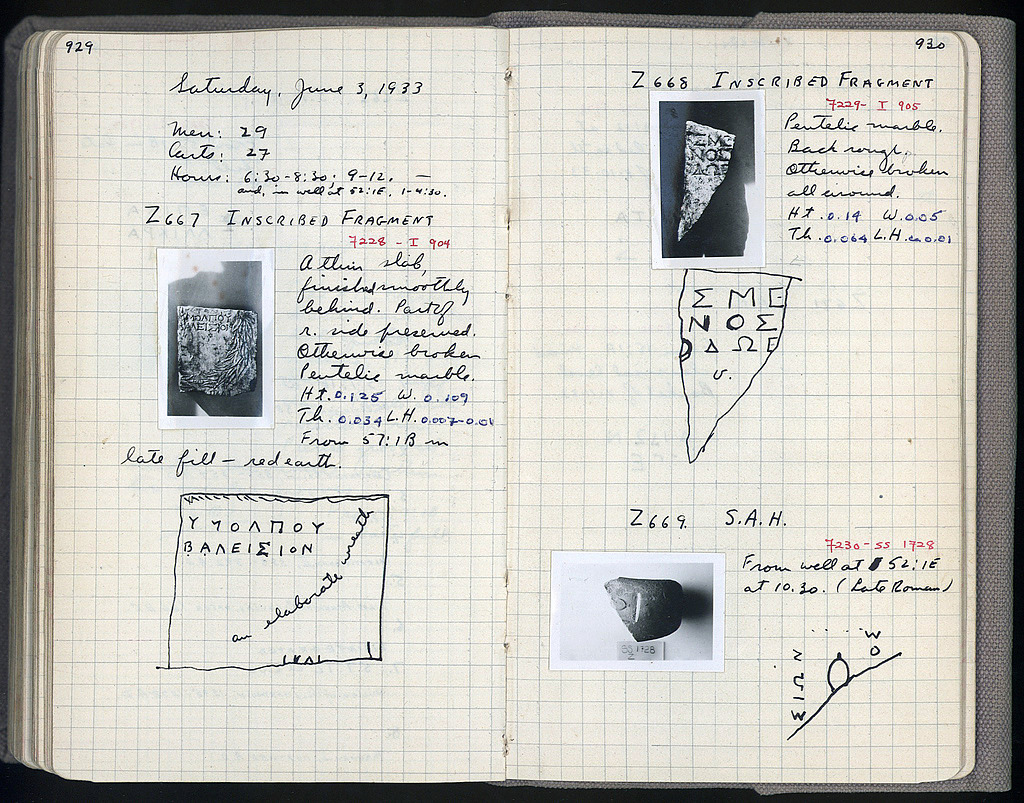 929
Saturday, June 3, 1933
Men: 29
Carts: 27
Hours: 6:30-8:30; 9-12. —
and, in well at 52:1E, 1-4:30.
Z667 INSCRIBED FRAGMENT
7228 - I 904
A thin slab,
finished smoothly
behind. Part of
r. side preserved.
Otherwise broken
Pentelic marble.
Ht. 0.125 W. 0.109
Th. 0.034 L.H. 0.007-0.01
From 57:1B in
late fill – red earth.
ΜΟΛΠΟΥ
ΛΕΙΣΙΟΝ
ΥΜΟΛΠΟΥ
ΒΑΛΕΙΣΙΟΝ
an elaborate wreath
930
Z668 INSCRIBED FRAGMENT
7229- I 905
Pentelic marble.
Back rough.
Otherwise broken
all around.
Ht. 0.14 W. 0.05
Th. 0.064 L.H. ca 0.01
ΣΜΕ
ΝΟΣ
ΔΩΕ
ΣΜΕ
ΝΟΣ
ΟΔΩΕ
υ.
Z669. S.A.H.
7230 - SS 1728
From well at 52:1E
at 10.30. (Late Roman)
SS 1728
Z